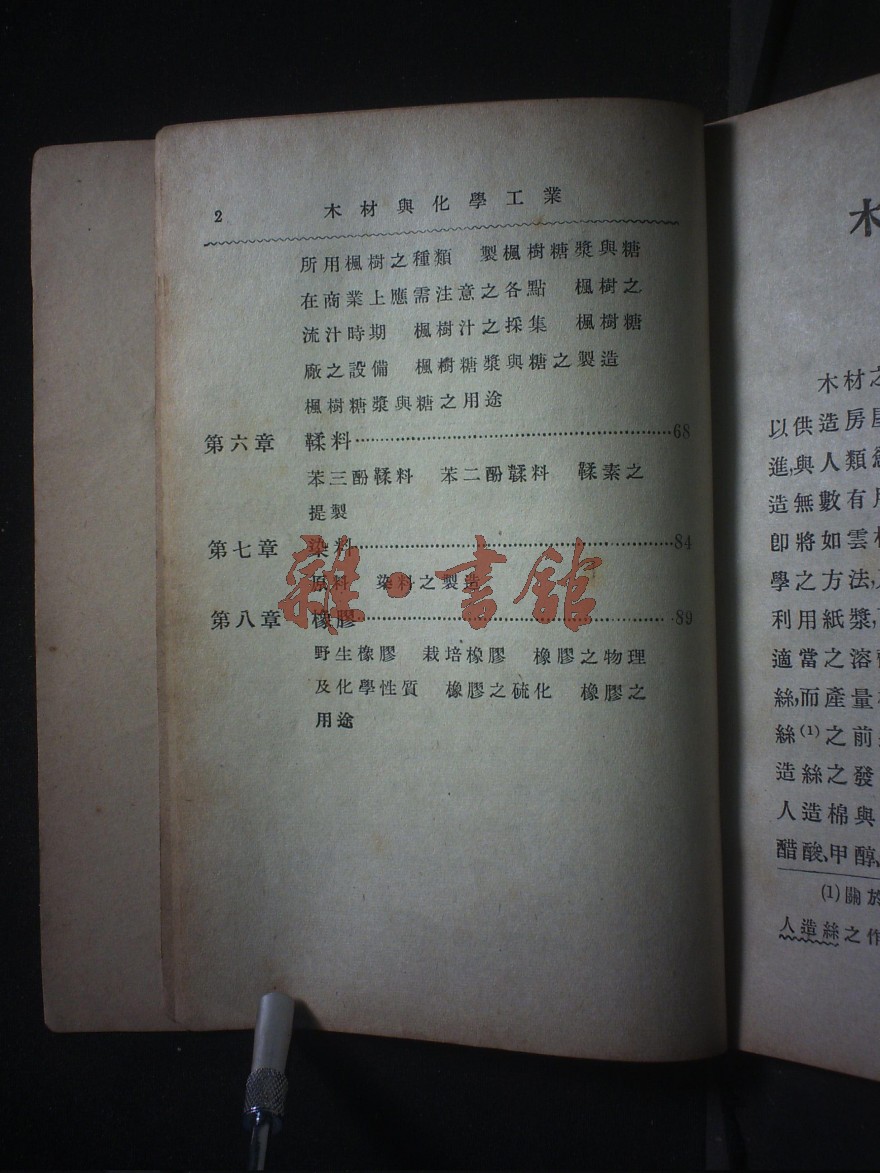 2 木材與化學工業
所用楓樹之種類 製楓樹糖漿與糖
在商業上應需注意之各點 楓樹之
流汁時期 楓樹汁之採集 楓樹糖
廠之設備 楓樹糖漿與糖之製造
楓樹糖漿與糖之用途
第六章 鞣料 68
苯三酚鞣料 苯二酚鞣料 鞣素之
提製
第七章 染料 84
原料 染料之製造
第八章 橡膠 89
野生橡膠 栽培橡膠 橡膠之物理
及化學性質 橡膠之硫化 橡膠之
用途
雜·書館
木
木材之
以供造房屋
進,與人類
造無數有用
卽將如雲杉
學之方法,
利用紙漿,
適當之溶
絲,而產量
絲⁽¹⁾之前
造絲之發
人造棉與
醋酸、甲醇、
(1)關於
人造絲之作